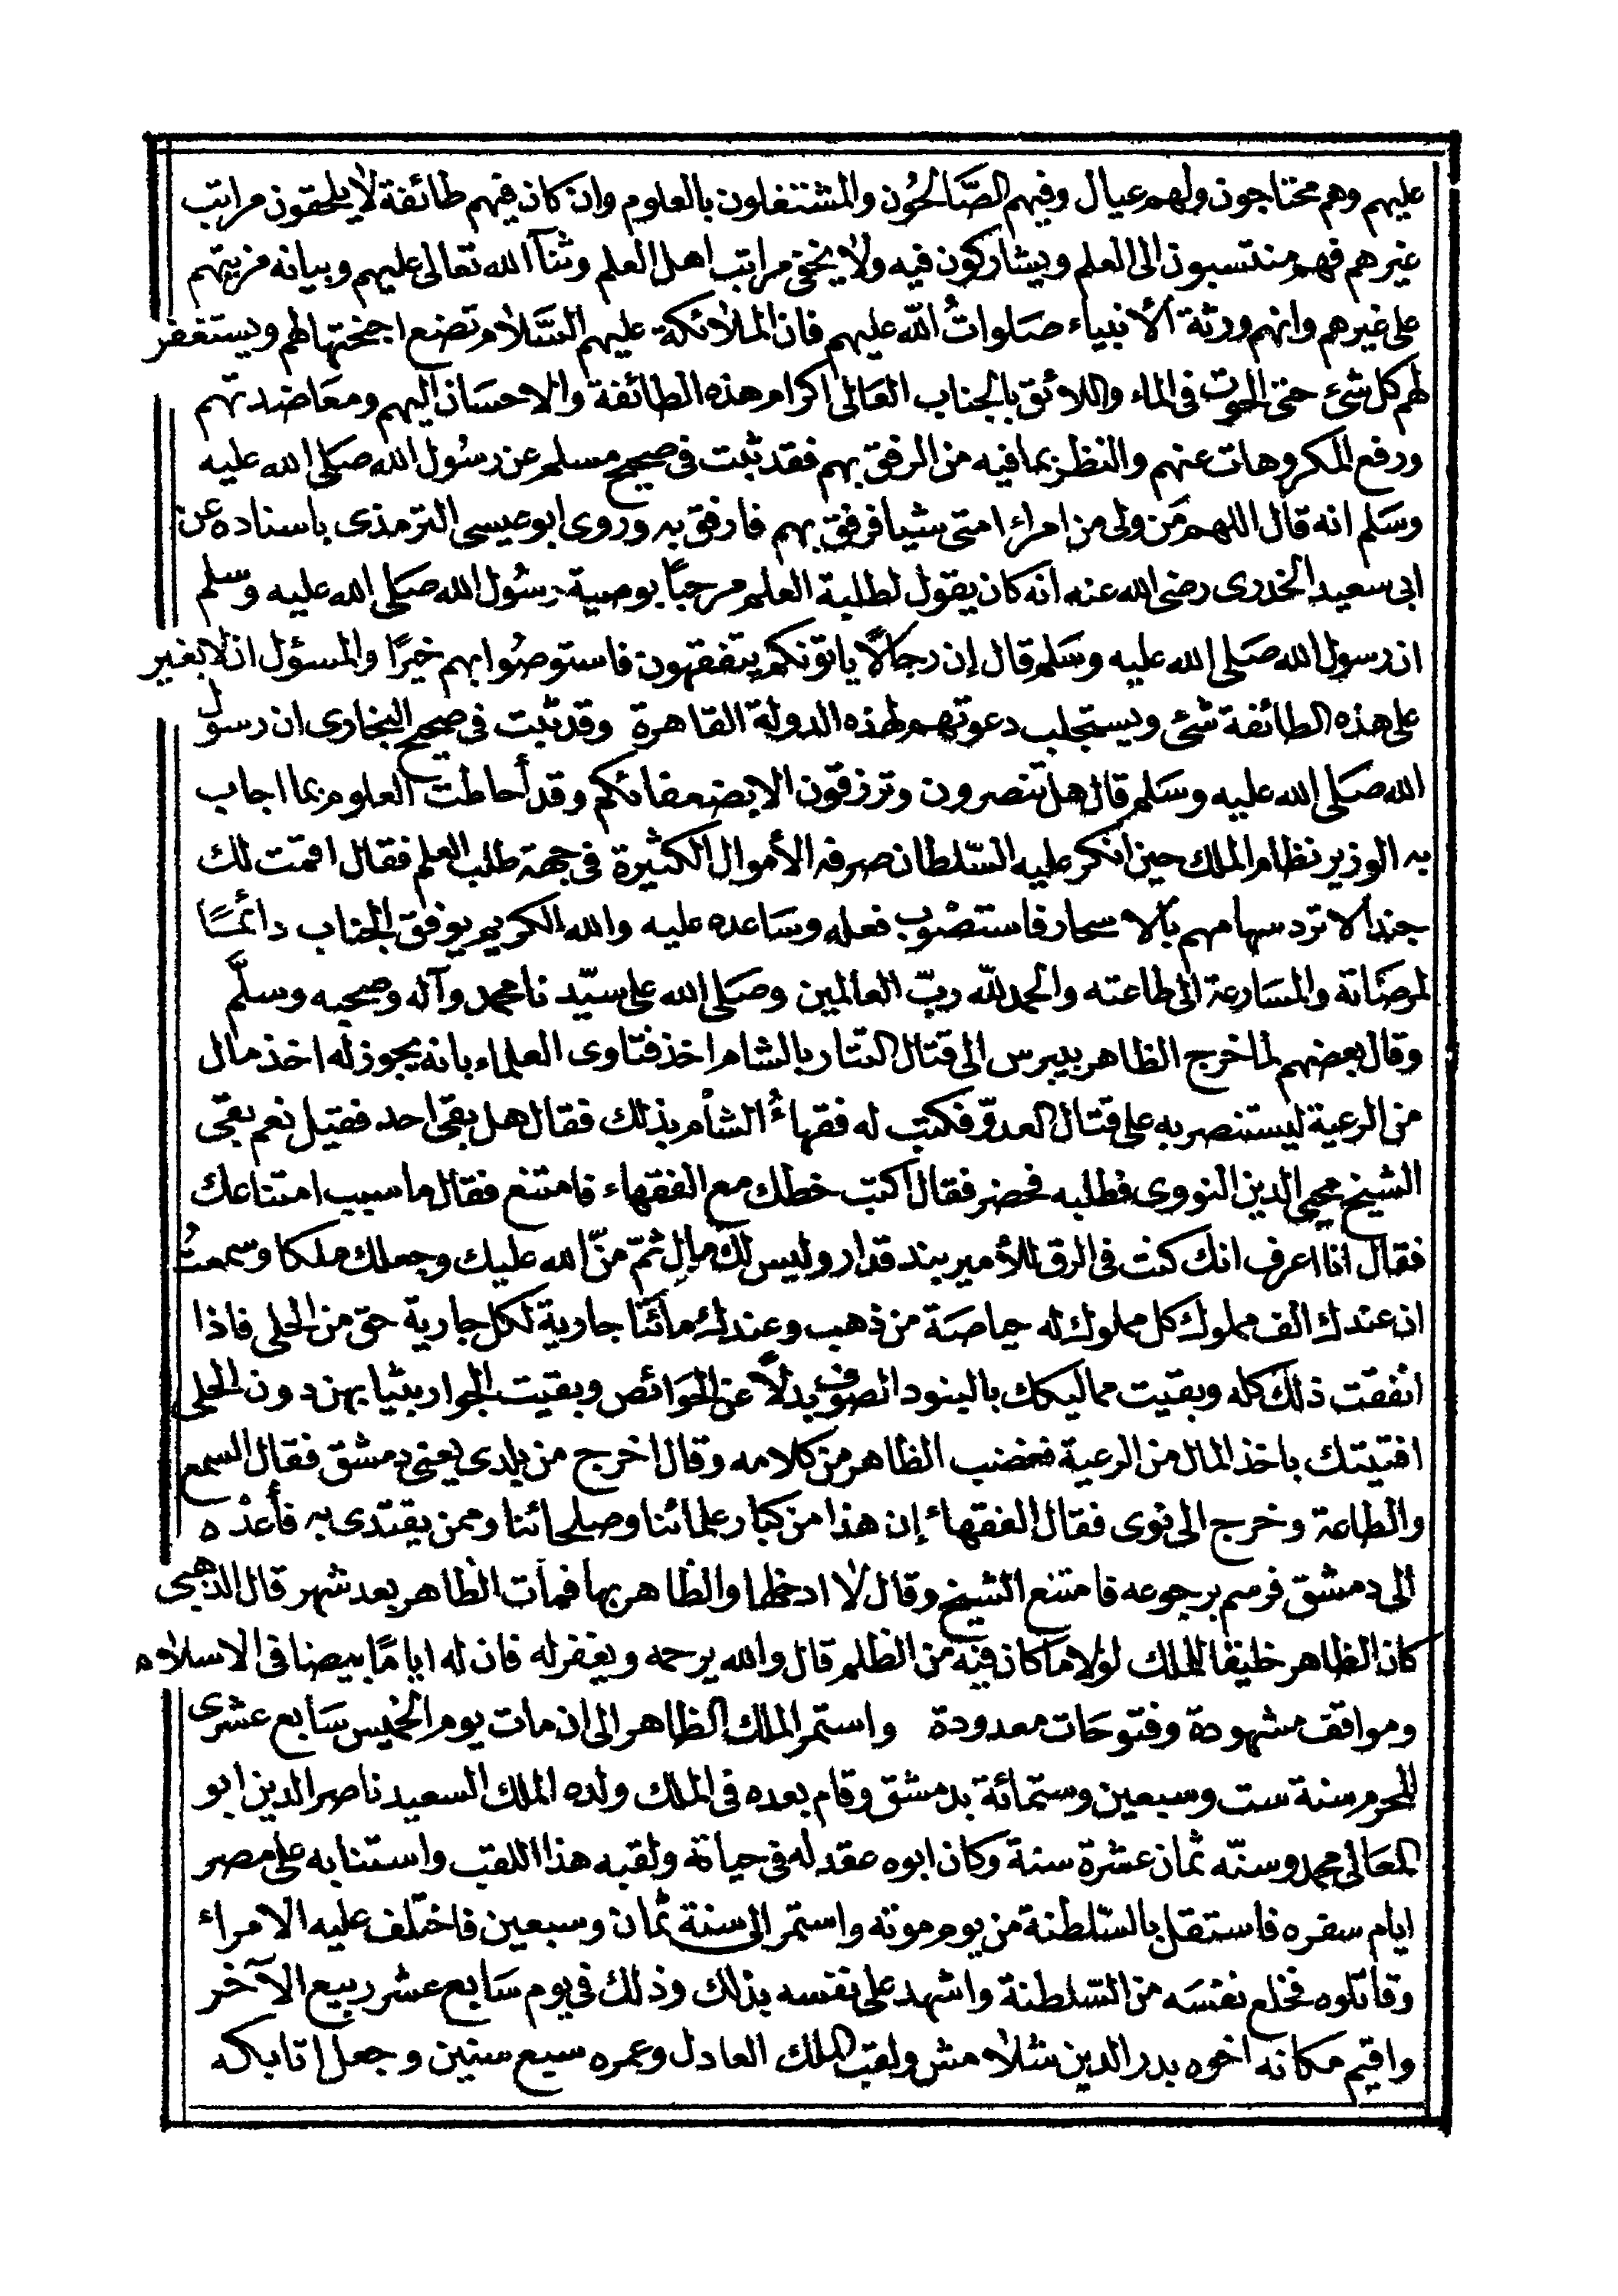 عليهم وهم محتاجون ولهم عيال وفيهم الصَّالحُون والمشتغلون بالعلوم وان كان فيهم طائفة لا يلحقون مراتب
غيرهم فهم منتسبون الى العلم ويشاركون فيه ولا يخفى مراتب اهل العلم وثنآ الله تعالى عليهم وبيانه مزيتهم
على غيرهم وانهم ورثة الأنبياء صَلواتُ الله عليهم فان الملائكة عليهم السَّلام تضع اجنحتها لهم ويستغفر
لهم كل شئ حتى الحوت فى الماء واللائق بالجناب العَالى اكرام هذه الطائفة والاحسَان اليهم ومعَاضدتهم
ورفع المكروهات عنهم والنظر بما فيه من الرفق بهم فقد ثبت فى صحيح مسلم عن رسُول الله صَلى الله عليه
وسَلم انه قال اللهم مَن ولى من امراء امتى شيا فرفق بهم فارفق به وروى ابو عيسى الترمذى باسناده عن
ابى سعيد الخدرى رضى الله عنه انه كان يقول لطلبة العلم مرحباً بوصية رسُول الله صَلى الله عليه وسلم
ان رسول الله صَلى الله عليه وسَلم قال إن رجالاً ياتونكم يتفقهون فاستوصُوا بهم خيرًا والمسؤل ان لا يغير
على هذه الطائفة شئ ويستجلب دعوتهم لهذه الدولة القاهرة وقد ثبت فى صحيح البخارى ان رسول
الله صَلى الله عليه وسَلم قال هل تنصرون وترزقون الا بضعفائكم وقد أحاطت العلوم بما اجاب
به الوزير نظام الملك حين انكر عليه السّلطان صرفه الأموال الكثيرة فى جهة طلب العلم فقال اقمت لك
جندا لا ترد سهامهم بالاسحار فاستصْوب فعله وسَاعده عليه والله الكريم يوفق الجناب دائمًا
لمرضَاتة والمسَارعة الى طاعته والحمد لله ربّ العالمين وصَلى الله على سيّدنا محمد وآله وصحبه وسلَّم
وقال بعضهم لما خرج الظاهر بيبرس الى قتال التتار بالشام اخذ فتاوى العلماء بانه يجوز له اخذ مال
من الرعية ليستنصر به على قتال العدوّ فكتب له فقهاءُ الشأم بذلك فقال هل بقى احد فقيل نعم بقى
الشيخ محيى الدين النووى فطلبه فحضر فقال اكتب خطك مع الفقهاء فامتنع فقال ما سبب امتناعك
فقال انا اعرف انك كنت فى الرق للأمير بندقدار وليس لك مال ثمّ منّ الله عليك وجعلك ملكا وسمعتُ
ان عندك الف مملوك كل مملوك له حياصة من ذهب وعندك مائتا جارية لكل جارية حق من الحلى فاذا
انفقت ذلك كله وبقيت مماليكك بالبنود الصوف بدلاً عن الحَوائص وبقيت الجوار بثيابهن دون الحلى
افتيتك باخذ المال من الرعية فغضب الظاهر من كلامه وقال اخرج من بلدى يعنى دمشق فقال السمع
والطاعة وخرج الى نوى فقال الفقهاء إن هذا من كبار علمائنا وصلحائنا وممن يقتدى به فأعدْه
الى دمشق فرسم برجوعه فامتنع الشيخ وقال لا ادخلها والظاهر بها فمات الظاهر بعد شهر قال الذهبى
كان الظاهر خليقا للملك لولا ما كان فيه من الظلم قال والله يرحمه ويغفر له فان له ايامًا بيضا فى الاسلام
ومواقف مشهودة وفتوحَات معدودة واستمر الملك الظاهر الى ان مات يوم الخميس سَابع عشرى
المحرم سنة ست وسبعين وستمائة بدمشق وقام بعده فى الملك ولده الملك السعيد ناصر الدين ابو
المعَالى محمد وسنّه ثمان عشرة سنة وكان ابوه عقد له فى حياتة ولقبه هذا اللقب واستنابه على مصر
ايام سفره فاستقل بالسّلطنة من يوم موته واستمر الى سنة ثمان وسبعين فاختلف عليه الامراء
وقاتلوه فخلع نفسَه من السّلطنة واشهد على نفسه بذلك وذلك فى يوم سَابع عشر ربيع الآخر
واقيم مكانه اخوه بدر الدين سُلامش ولقب الملك العادل وعمره سبع سنين وجعل اتابكه